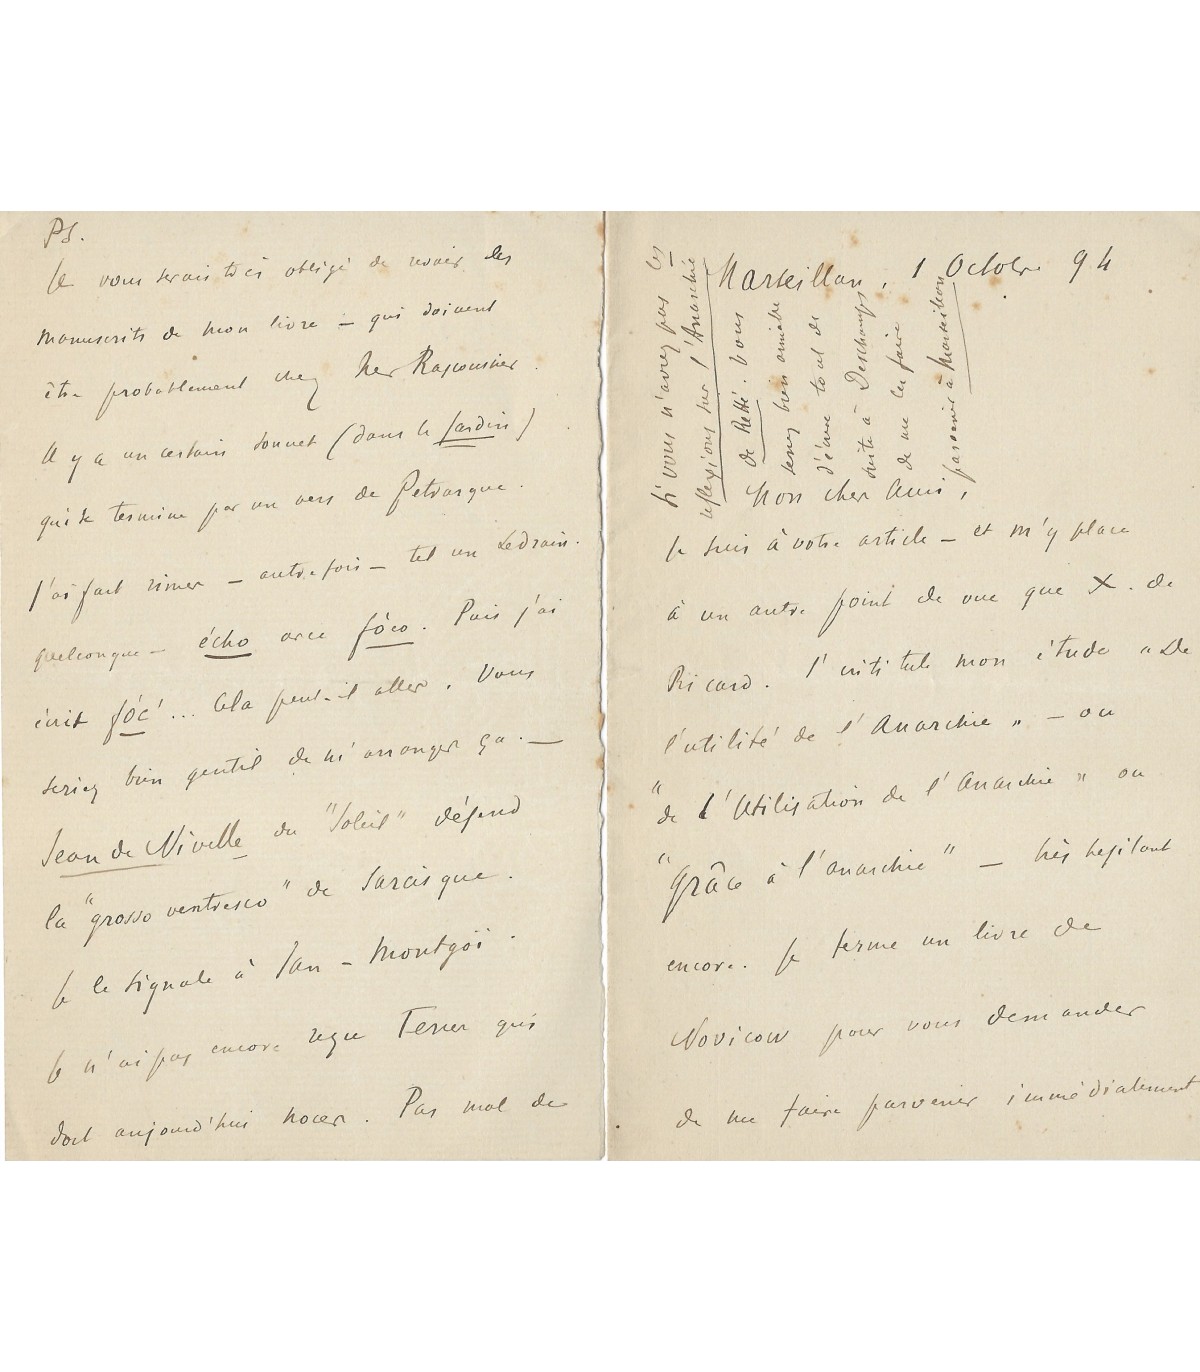 PS.
Je vous serais très obligé de revoir les
manuscrits de mon livre – qui doivent
être probablement chez Her
Il y a un certain sonnet (dans le Jardin)
qui se termine par un vers de Petrarque.
J'ai fait rimer – autrefois – tel un Ledrain
quelconque – écho avec fôco. Puis j'ai
écrit fôc'... Cela peut-il aller. Vous
seriez bien gentil de m'arranger ça. —
Jean de Nivelle du "Soleil" défend
la "grosso ventresco" de Sarcisque.
Je le signale à Jan – Montgôï.
Je n'ai pas encore reçu qui
doit aujourd'hui nocer. Pas mal de
Marseillan, 1 Octobre 94
Si vous n'avez pas les
reflexions sur l'Anarchie
de Retté. Vous
serez bien aimable
tout de
suite à Deschamps
de me les faire
parvenir à Marseillan
Mon cher Ami,
Je suis à votre article – et m'y place
à un autre point de vue que X. de
Ricard. J'intitule mon étude "De
l'utilité de l'Anarchie" – ou
"de l'Utilisation de l'Anarchie" ou
"Grâce à l'anarchie" – très hésitant
encore. Je ferme un livre de
Novicow pour vous demander
de me faire parvenir immédiatement